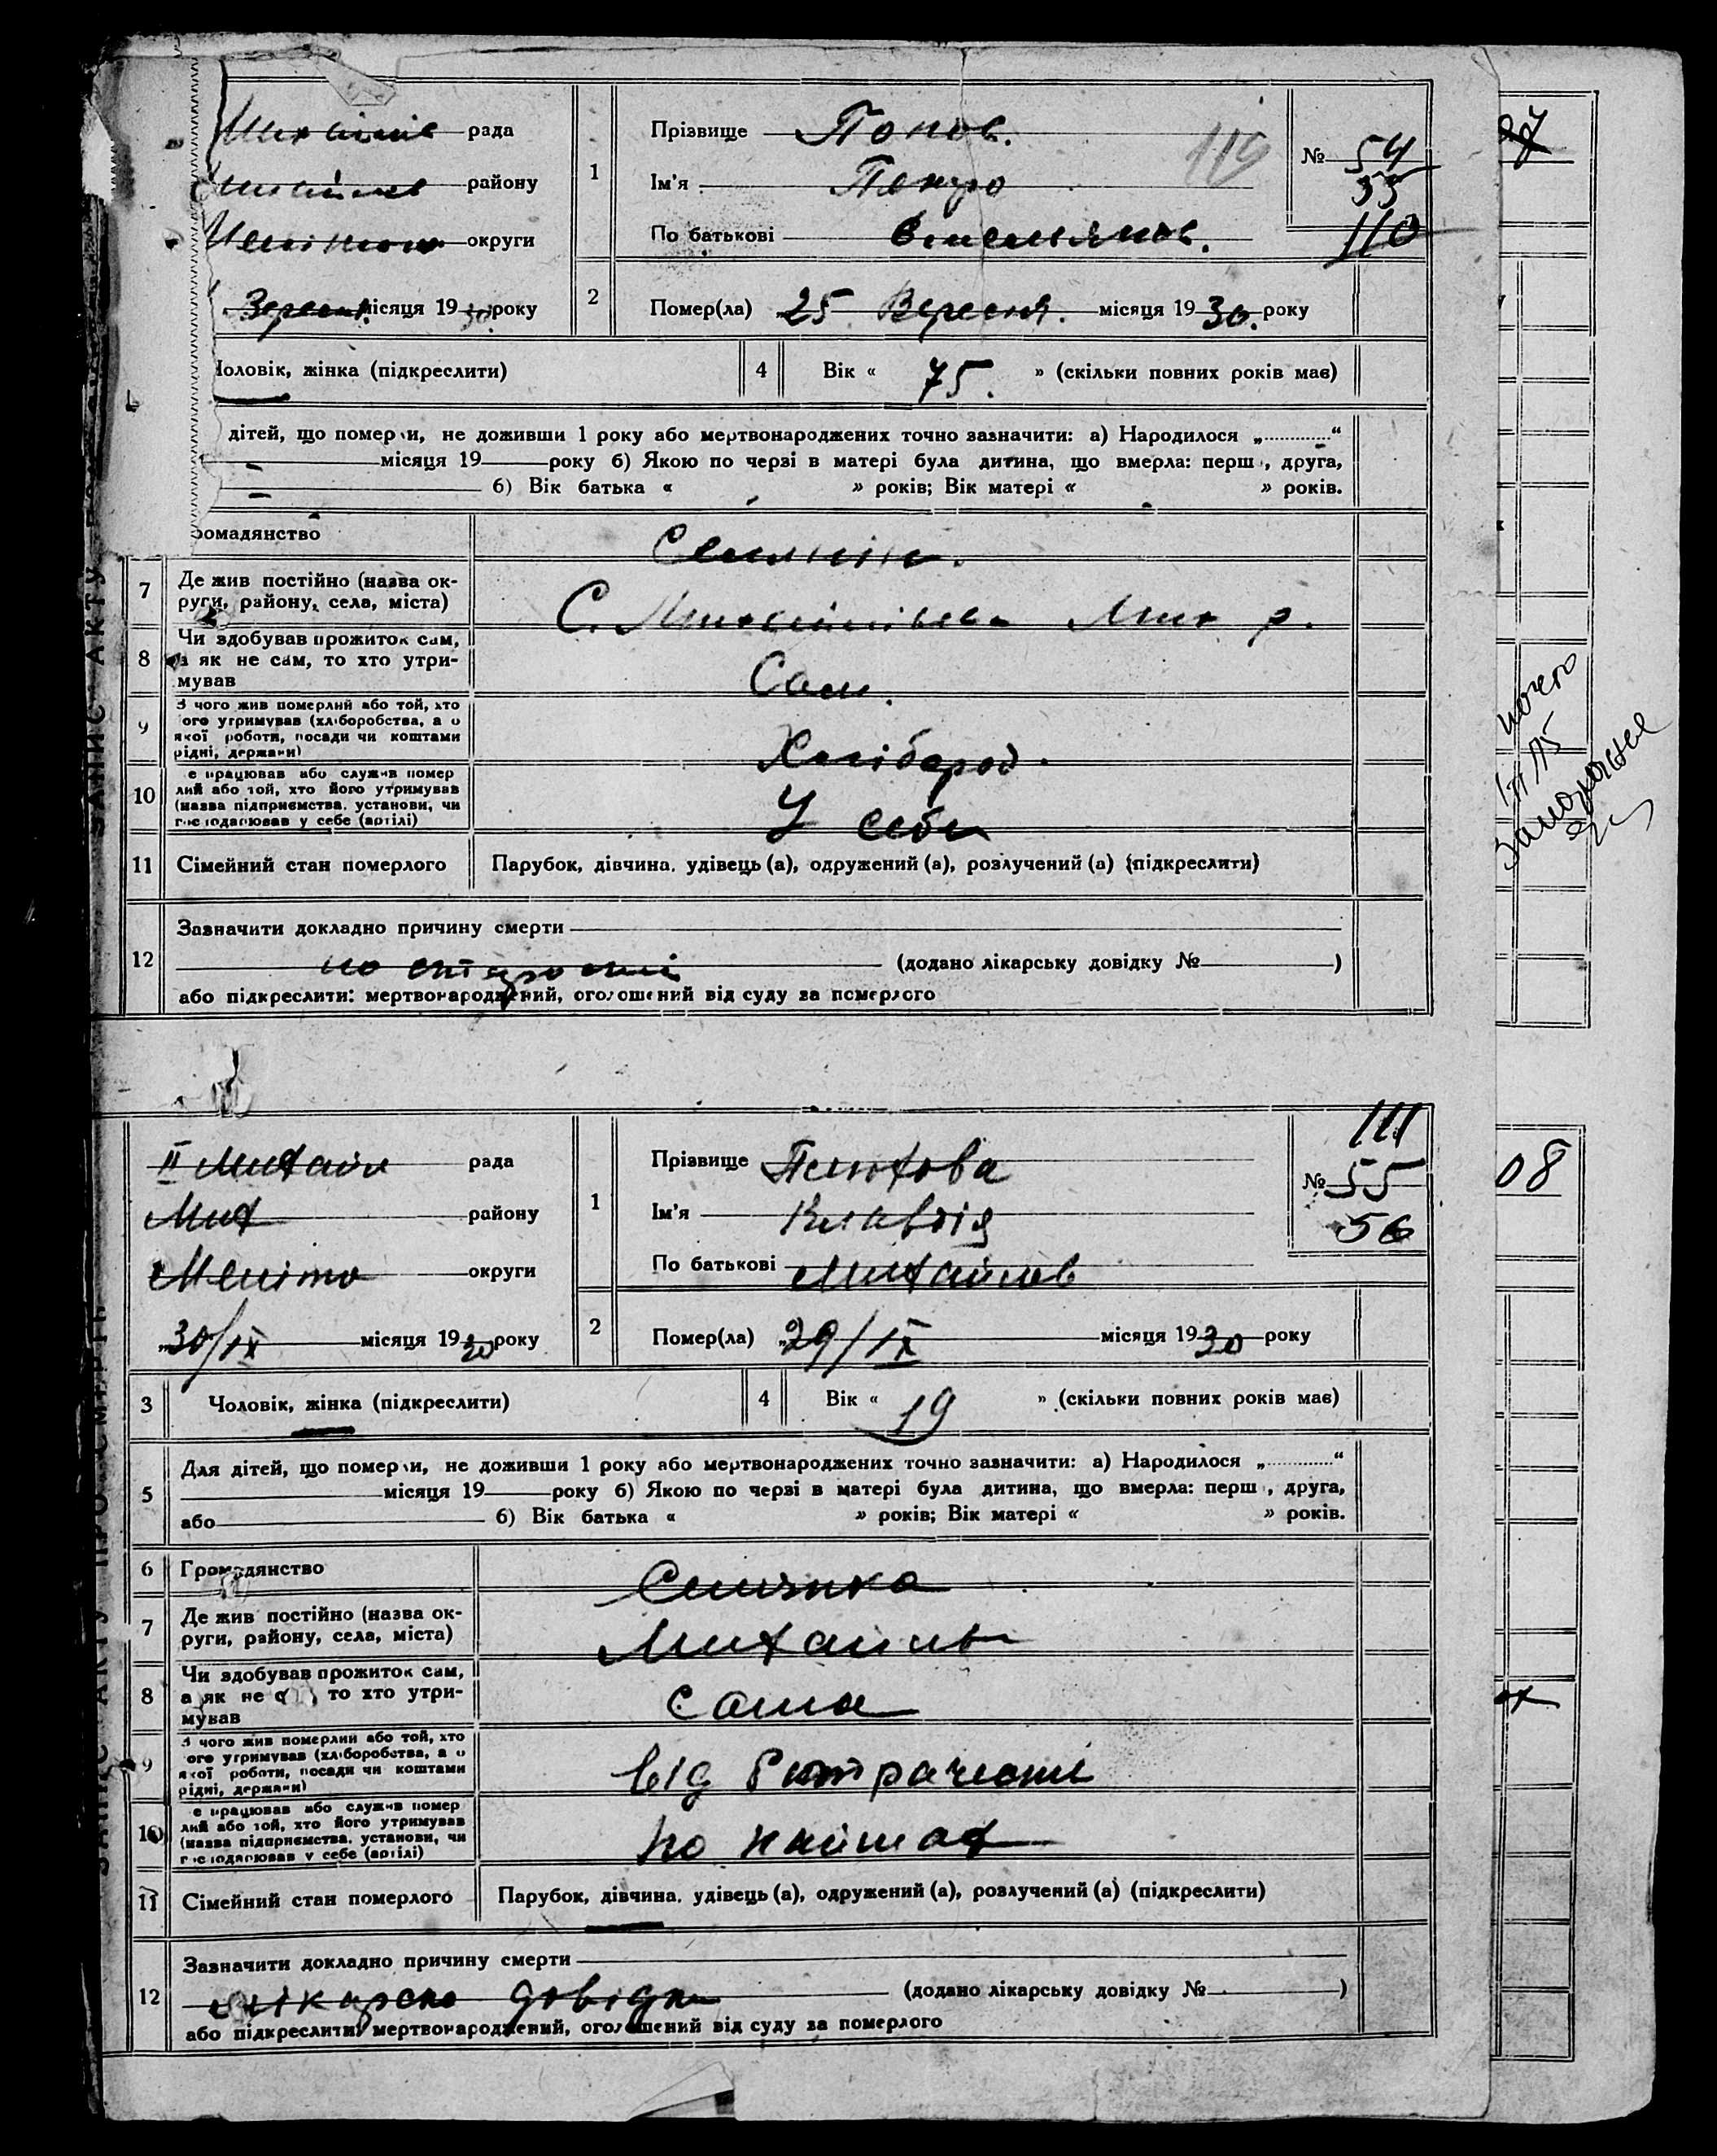 рада
району
округи
Вересня місяця 1930 року
1
Прізвище Попов.
Ім'я Петро
По батькові Омельянов.
№ 54
55
110
2
Помер(ла) „25 Вересня. місяця 1930. року
Чоловік, жінка (підкреслити)
4
Вік « 75. » (скільки повних років має)
дітей, що померли, не доживши 1 року або мертвонароджених точно зазначити: а) Народилося „............“
місяця 19 року б) Якою по черзі в матері була дитина, що вмерла: перша, друга,
б) Вік батька « » років; Вік матері « » років.
громадянство
Селянин.
7
Де жив постійно (назва ок-
руги, району, села, міста)
С. Михайлівка Мих р.
8
Чи здобував прожиток сам,
а як не сам, то хто утри-
мував
Сам.
9
З чого жив померлий або той, хто
його утримував (хліборобства, а о
якої роботи, посади чи коштами
рідні, держави)
Хлібороб.
10
е працював або служив помер
лий або той, хто його утримував
(назва підприємства, установи, чи
господарював у себе (артілі)
У себе
11
Сімейний стан померлого
Парубок, дівчина, удівець (а), одружений (а), розлучений (а) (підкреслити)
12
Зазначити докладно причину смерти
по старості (додано лікарську довідку № )
або підкреслити: мертвонароджений, оголошений від суду за померлого
II Михайл рада
Мих району
Меліто округи
„30/IX місяця 1930 року
1
Прізвище
Ім'я Клавдія
По батькові Михайлов
111
№ 55
56
2
Помер(ла) „29/IX місяця 1930 року
3
Чоловік, жінка (підкреслити)
4
Вік « 19 » (скільки повних років має)
5
Для дітей, що померли, не доживши 1 року або мертвонароджених точно зазначити: а) Народилося „............“
місяця 19 року б) Якою по черзі в матері була дитина, що вмерла: перша, друга,
або б) Вік батька « » років; Вік матері « » років.
6
Громадянство
Селянка
7
Де жив постійно (назва ок-
руги, району, села, міста)
Михайлів
8
Чи здобував прожиток сам,
а як не то хто утри-
мував
сама
9
З чого жив померлий або той, хто
його утримував (хліборобства, а о
якої роботи, посади чи коштами
рідні, держави)
від
10
е працював або служив помер
лий або той, хто його утримував
(назва підприємства, установи, чи
господарював у себе (артілі)
по наймах
11
Сімейний стан померлого
Парубок, дівчина, удівець (а), одружений (а), розлучений (а) (підкреслити)
12
Зазначити докладно причину смерти
лікарська довідка (додано лікарську довідку № )
або підкреслити: мертвонароджений, оголошений від суду за померлого
08